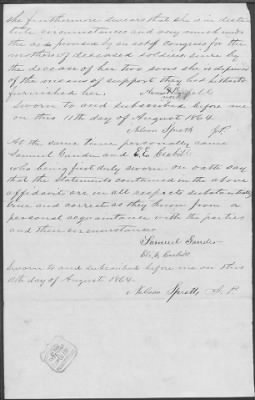 She furthermore swears that she is in desti-
tute circumstances and very much needs
the aid provided by an act of Congress for the
mothers of deceased soldiers since by
the decease of her two sons she is deprived
of the means of support they had hitherto
furnished her.
Sworn to and subscribed before me
on this 11th day of August 1864.
Nelson Spratt J.P.
At the same time personally came
Samuel Sunder and E. E.
who being first duly sworn on oath say
that the statements contained in the above
affidavit are in all respects substantially
true and correct as they know from a
personal acquaintance with the parties
and their circumstances
Samuel Sunder
Sworn to and subscribed before me on this
11th day of August 1864.
Nelson Spratt J.P.